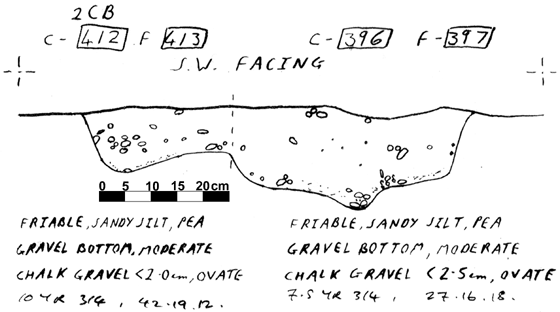 2CB
C - 412 F 413 C - 396 F - 397
S.W. FACING
0 5 10 15 20cm
FRIABLE, SANDY SILT, PEA
GRAVEL BOTTOM, MODERATE
CHALK GRAVEL <2.0cm, OVATE
10 YR 3/4 , 42.19.12.
FRIABLE, SANDY SILT, PEA
GRAVEL BOTTOM, MODERATE
CHALK GRAVEL <2.5cm, OVATE
7.5 YR 3/4 , 27.16.18.